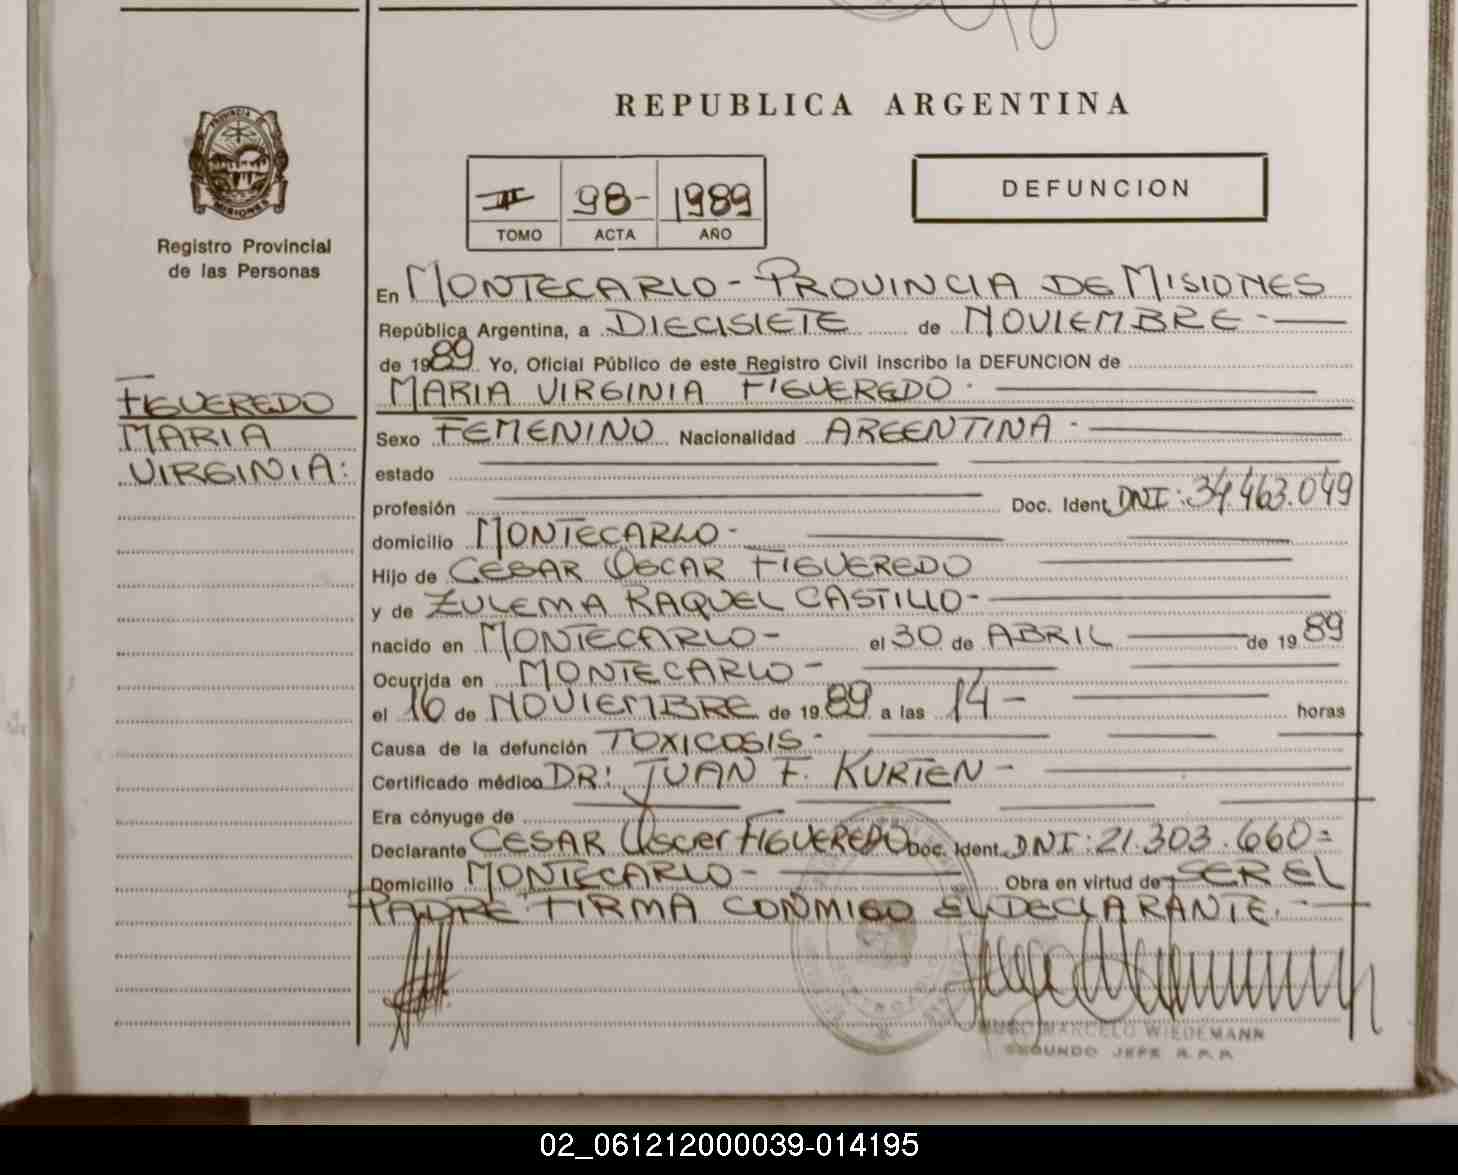 REPUBLICA ARGENTINA
PROVINCIA DE
MISIONES
Registro Provincial
de las Personas
II 98- 1989
TOMO ACTA AÑO
DEFUNCION
FIGUEREDO
MARIA
VIRGINIA:
En MONTECARLO - PROVINCIA DE MISIONES
República Argentina, a DIECISIETE de NOVIEMBRE -
de 1989 Yo, Oficial Público de este Registro Civil inscribo la DEFUNCION de
MARIA VIRGINIA FIGUEREDO -
Sexo FEMENINO Nacionalidad ARGENTINA -
estado
profesión Doc. Ident. DNI: 34.463.049
domicilio MONTECARLO -
Hijo de CESAR OSCAR FIGUEREDO
y de ZULEMA RAQUEL CASTILLO -
nacido en MONTECARLO - el 30 de ABRIL de 1989
Ocurrida en MONTECARLO -
el 16 de NOVIEMBRE de 1989 a las 14 - horas
Causa de la defunción TOXICOSIS -
Certificado médico DR: JUAN F. KURTEN -
Era cónyuge de
Declarante CESAR Oscar FIGUEREDO Doc. Ident. DNI: 21.303.660=
Domicilio MONTECARLO - Obra en virtud de SER EL
PADRE FIRMA CONMIGO EL DECLARANTE. -
HUGO MARCELO WIEDEMANN
SEGUNDO JEFE R.P.P.
02_061212000039-014195